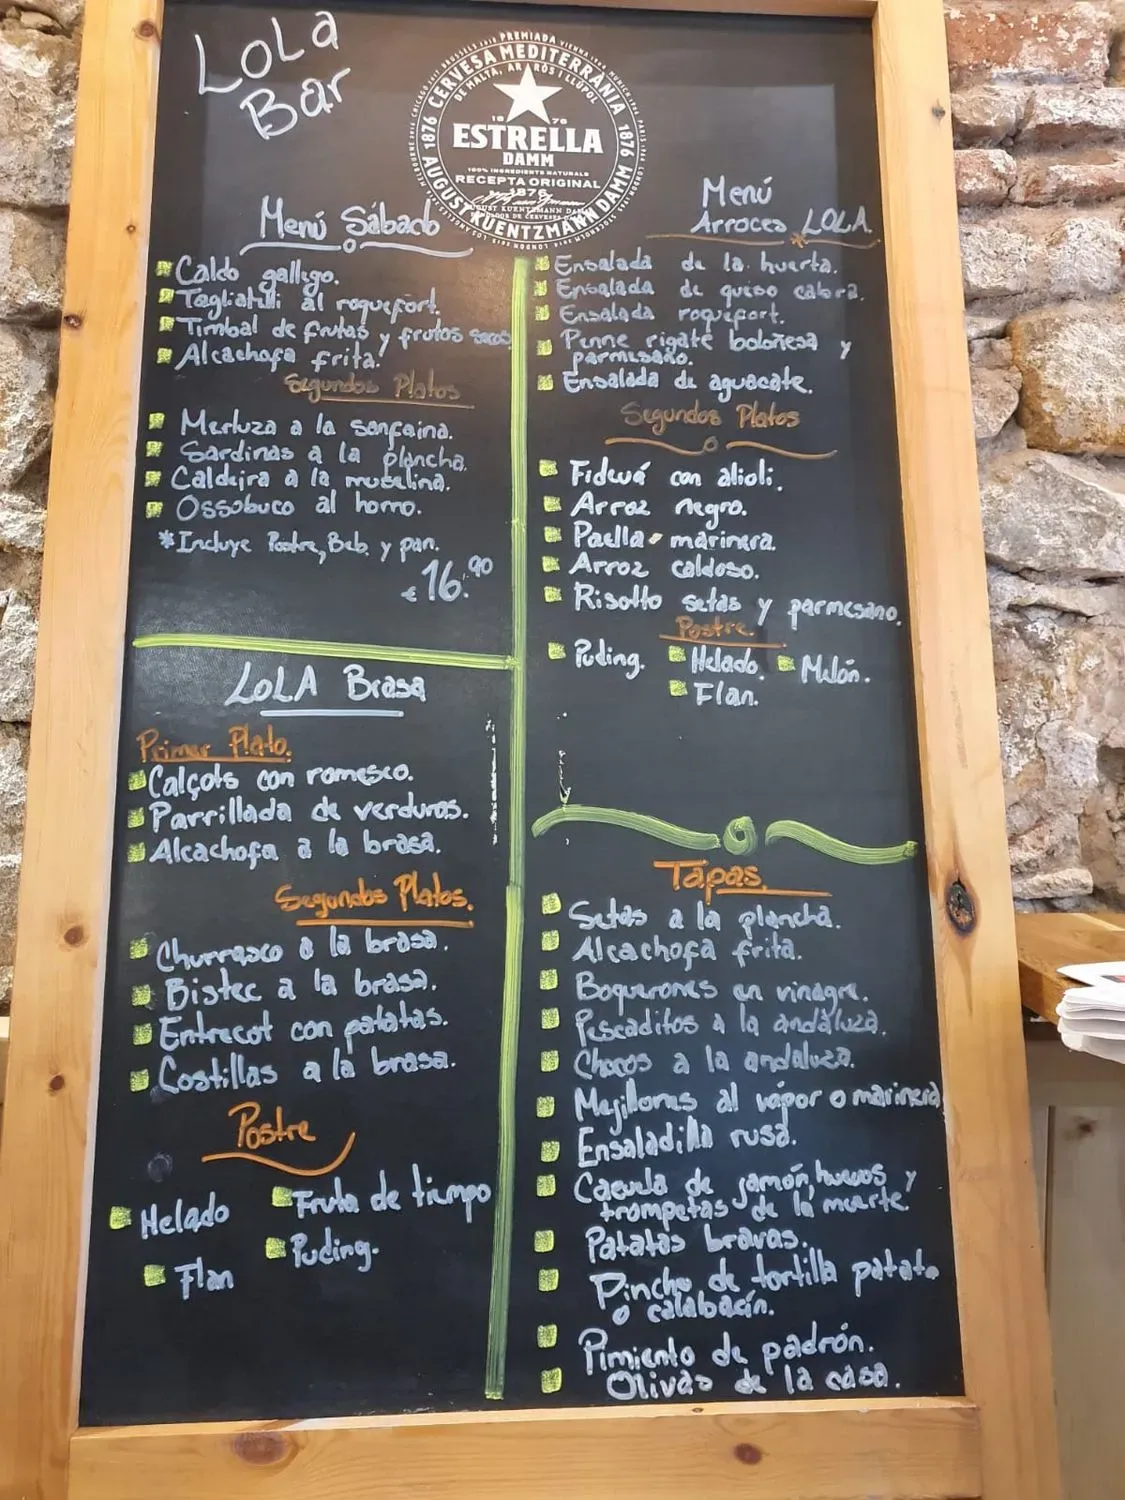 LOLA
Bar
PREMIADA
CERVESA MEDITERRÀNIA
DE MALTA, ARRÒS I LLÚPOL
1876
1876
1876
ESTRELLA
DAMM
100% INGREDIENTS NATURALS
RECEPTA ORIGINAL
1876
AUGUST KUENTZMANN DAMM
Menú Sábado
Caldo gallego.
Tagliatelli al roquefort.
Timbal de frutas y frutos secos
Alcachofa frita.
Segundos Platos
Merluza a la sanfaina.
Sardinas a la plancha.
Caldeira a la muselina.
Ossobuco al horno.
*Incluye Postre, Beb. y pan.
€16.90
Menú
Arroces LOLA
Ensalada de la huerta.
Ensalada de queso cabra.
Ensalada roquefort.
Penne rigate boloñesa y
parmesano.
Ensalada de aguacate.
Segundos Platos
Fideuá con alioli.
Arroz negro.
Paella marinera
Arroz caldoso.
Risotto setas y parmesano.
Postre.
Puding. Helado. Melón.
Flan.
LOLA Brasa
Primer Plato.
Calçots con romesco.
Parrillada de verduras.
Alcachofa a la brasa.
Segundos Platos.
Churrasco a la brasa.
Bistec a la brasa.
Entrecot con patatas.
Costillas a la brasa.
Postre
Helado Fruta de tiempo
Flan Puding.
Tapas.
Setas a la plancha.
Alcachofa frita.
Boquerones en vinagre.
Pescaditos a la andaluza.
Chocos a la andaluza.
Mejillones al vapor o marinera
Ensaladilla rusa.
Cazuela de jamón, huevos y
trompetas de la muerte.
Patatas bravas.
Pincho de tortilla patata
o calabacín.
Pimiento de padrón.
Olivas de la casa.